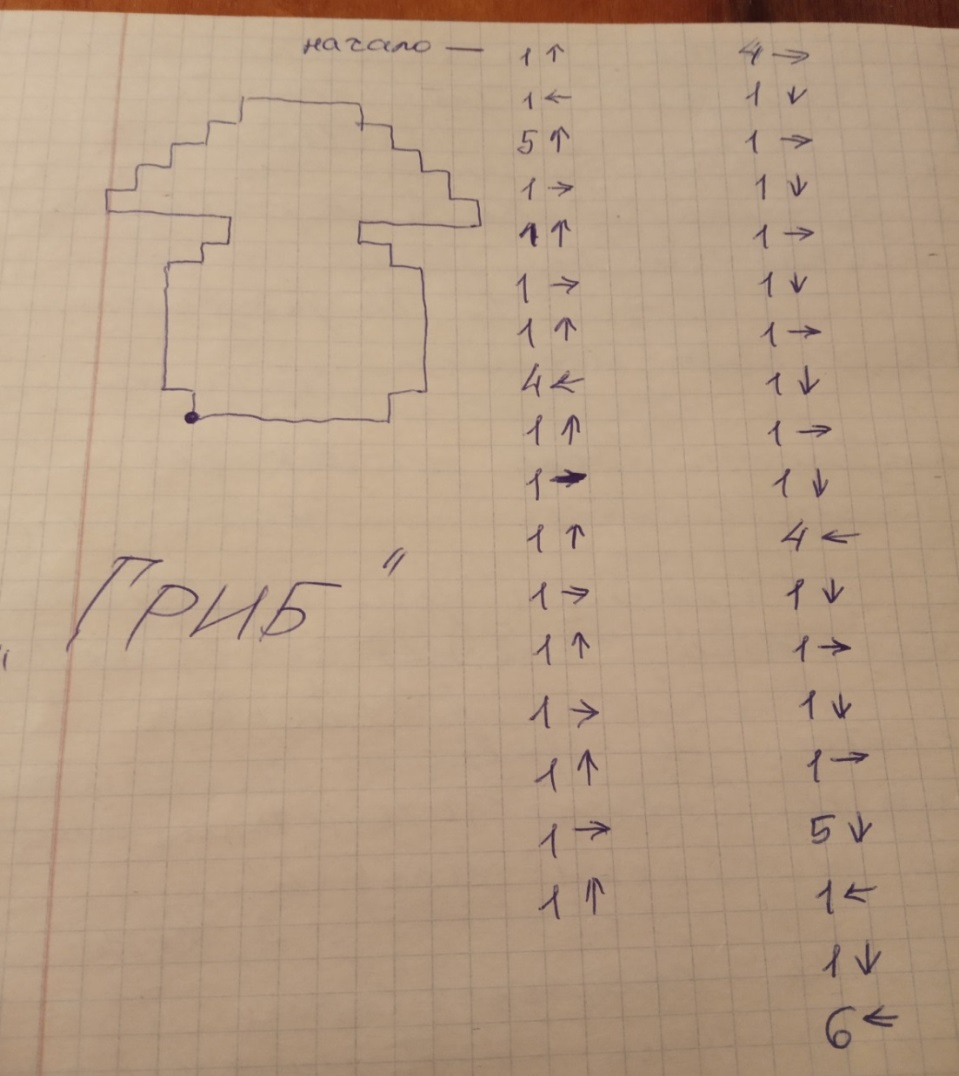 начало — 1 ↑
1 ←
5 ↑
1 →
1 ↑
1 →
1 ↑
4 ←
1 ↑
1 →
1 ↑
1 →
1 ↑
1 →
1 ↑
1 →
1 ↑
4 →
1 ↓
1 →
1 ↓
1 →
1 ↓
1 →
1 ↓
1 →
1 ↓
4 ←
1 ↓
1 →
1 ↓
1 →
5 ↓
1 ←
1 ↓
6 ←
„ГРИБ"